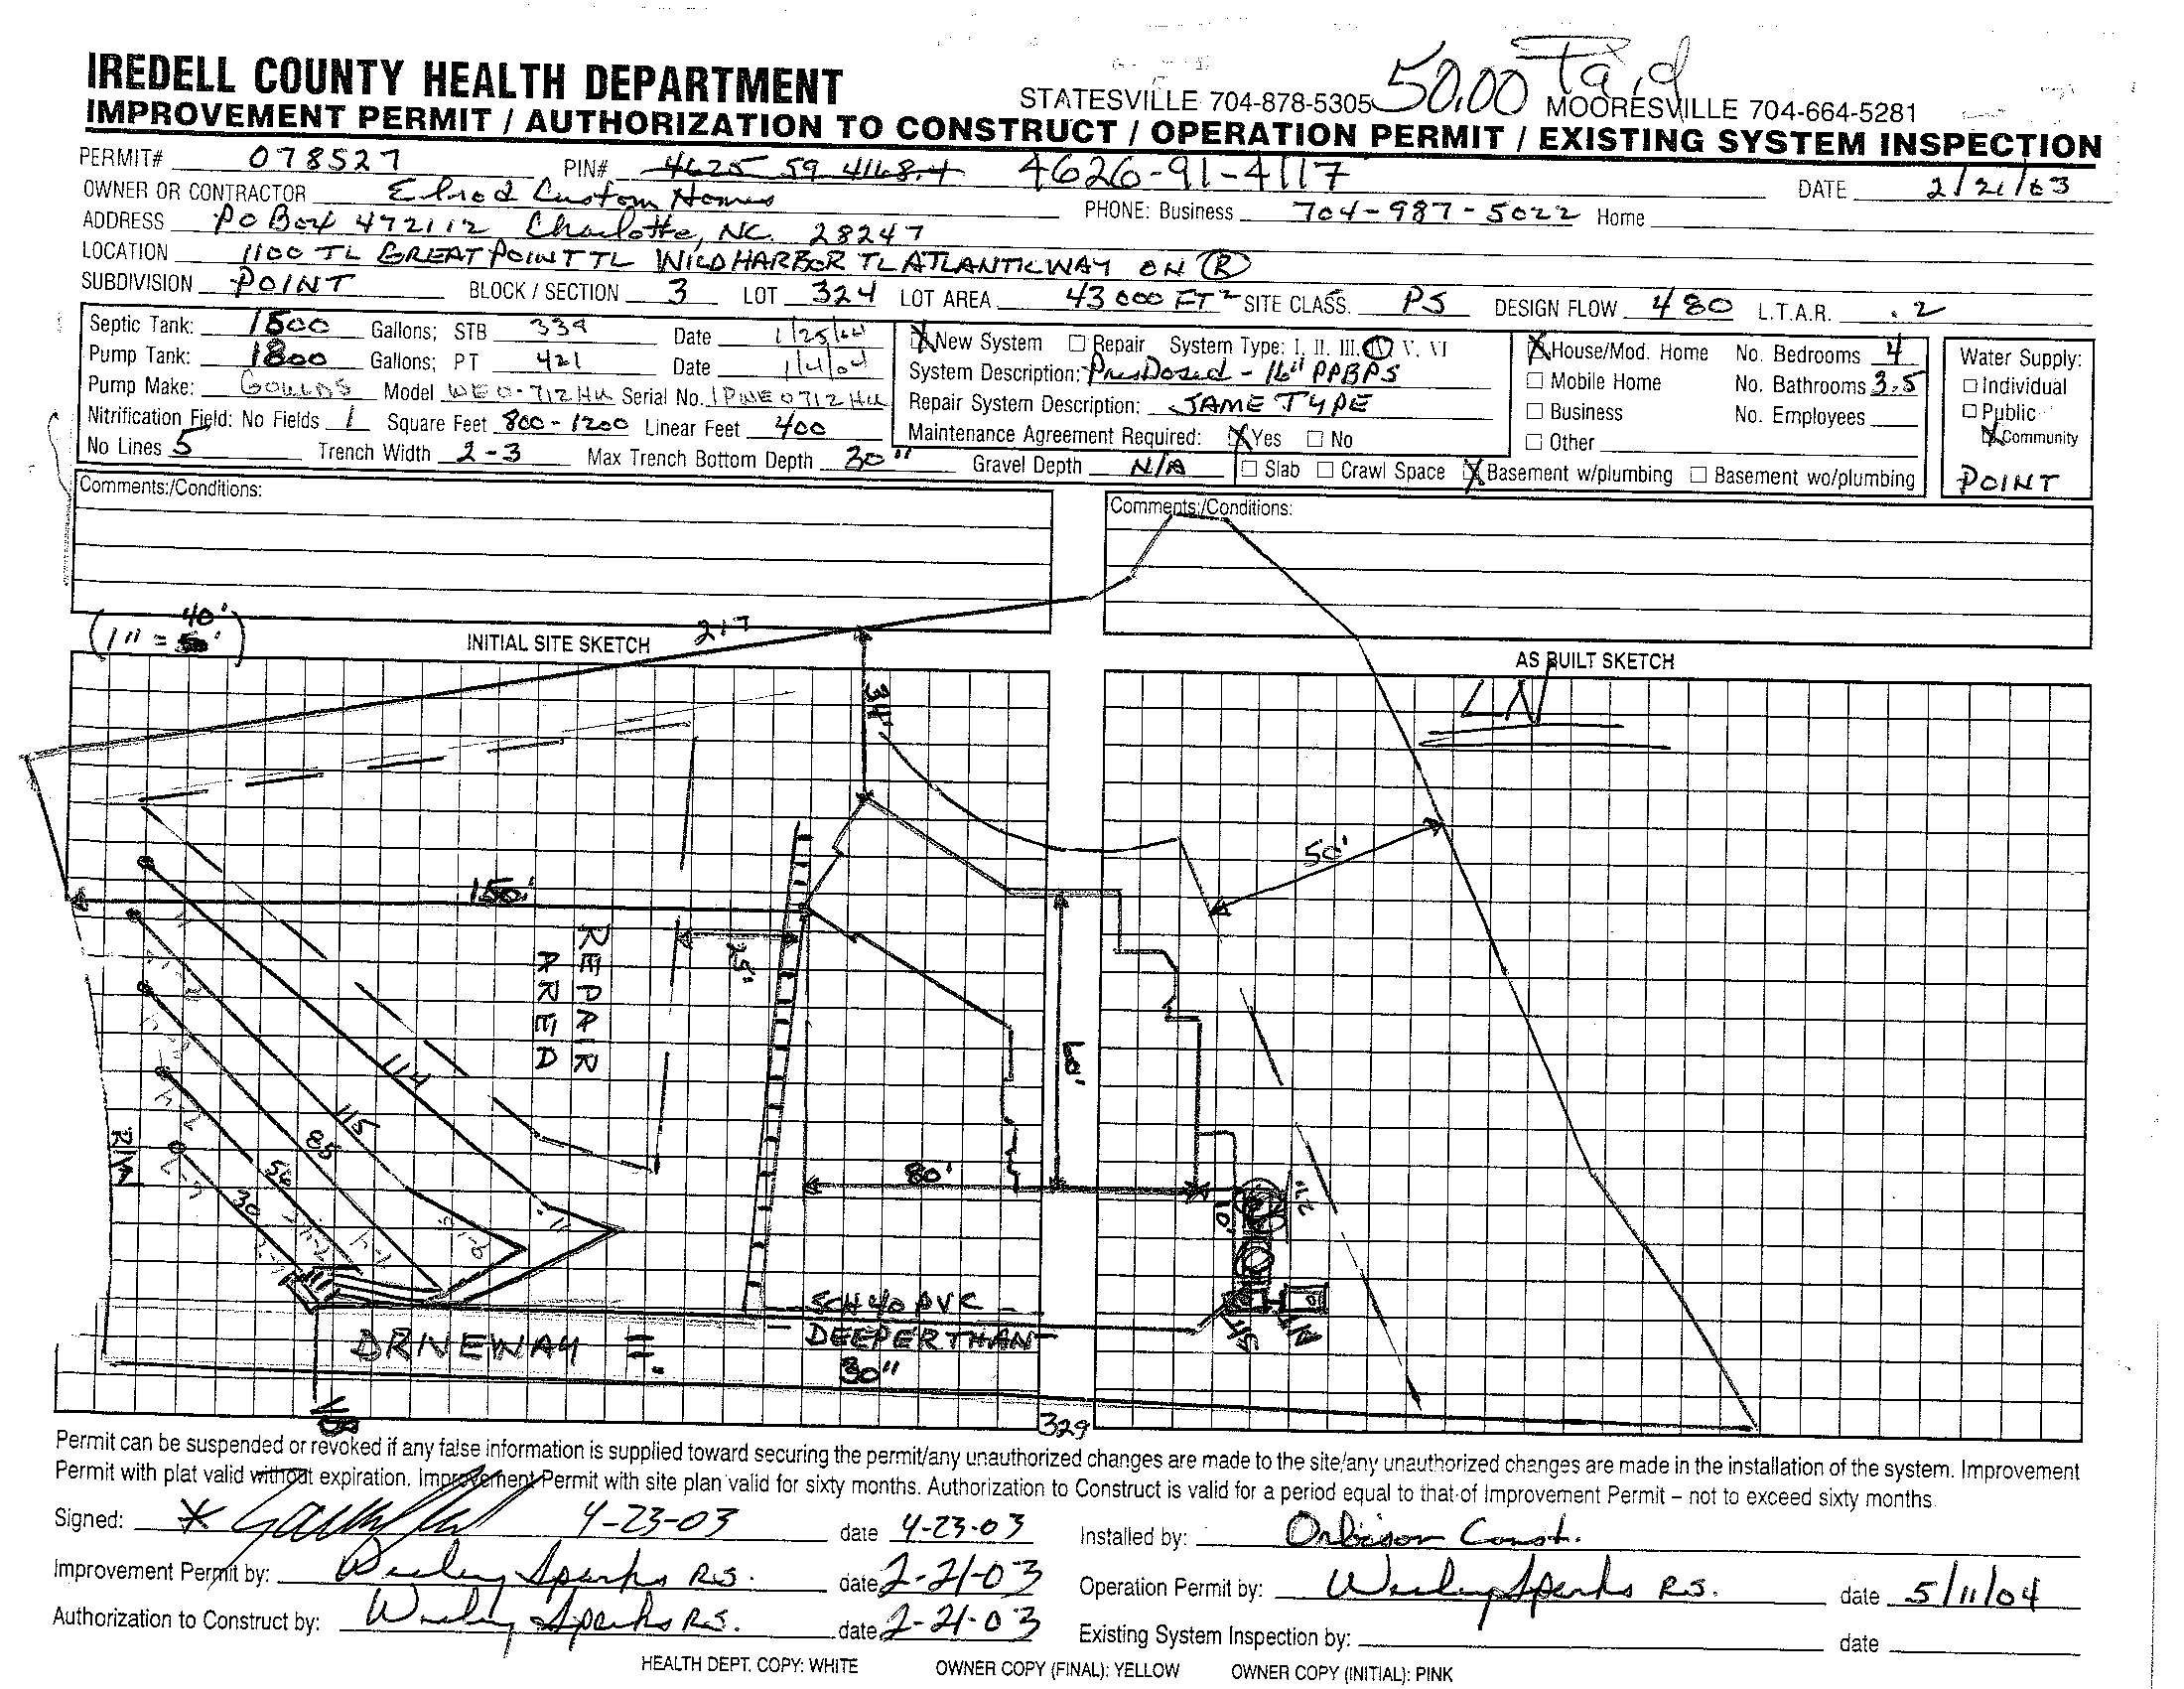 50.00 Paid
IREDELL COUNTY HEALTH DEPARTMENT
STATESVILLE 704-878-5305 MOORESVILLE 704-664-5281
IMPROVEMENT PERMIT / AUTHORIZATION TO CONSTRUCT / OPERATION PERMIT / EXISTING SYSTEM INSPECTION
PERMIT# 078527 PIN# 4625 59 4168.4 4626-91-4117 DATE 2/21/03
OWNER OR CONTRACTOR Elrod Custom Homes PHONE: Business 704-987-5022 Home
ADDRESS PO Box 472112 Charlotte, NC. 28247
LOCATION 1100 TL GREAT POINT TL WILD HARBOR TL ATLANTIC WAY ON R
SUBDIVISION POINT BLOCK / SECTION 3 LOT 324 LOT AREA 43000 FT² SITE CLASS. PS DESIGN FLOW 480 L.T.A.R. .2
Septic Tank: 1500 Gallons; STB 339 Date 1/25/04
Pump Tank: 1800 Gallons; PT 421 Date 1/4/04
Pump Make: GOULDS Model WE0-712HH Serial No. 1PWE0712HH
Nitrification Field: No Fields 1 Square Feet 800-1200 Linear Feet 400
No Lines 5 Trench Width 2-3 Max Trench Bottom Depth 30" Gravel Depth N/A
X New System Repair System Type: I, II, III, IV V, VI
System Description: Pres Dosed - 16" PPBPS
Repair System Description: SAME TYPE
Maintenance Agreement Required: X Yes No
Slab Crawl Space X Basement w/plumbing Basement wo/plumbing
X House/Mod. Home No. Bedrooms 4
Mobile Home No. Bathrooms 3.5
Business No. Employees
Other
Water Supply:
Individual
Public
X Community
POINT
Comments:/Conditions:
Comments:/Conditions:
(1" = 40')
INITIAL SITE SKETCH 217
AS BUILT SKETCH
34'
50'
150'
25'
REPAIR
AREA
60'
114
115
85
54
30
R/W
80'
10'
SCH 40 PVC
DEEPER THAN
30"
DRIVEWAY
329
Permit can be suspended or revoked if any false information is supplied toward securing the permit/any unauthorized changes are made to the site/any unauthorized changes are made in the installation of the system. Improvement
Permit with plat valid without expiration. Improvement Permit with site plan valid for sixty months. Authorization to Construct is valid for a period equal to that of Improvement Permit – not to exceed sixty months.
Signed: * 4-23-03 date 4-23-03 Installed by: Orbison Const.
Improvement Permit by: Wesley Sparks R.S. date 2-21-03 Operation Permit by: Wesley Sparks R.S. date 5/11/04
Authorization to Construct by: Wesley Sparks R.S. date 2-21-03 Existing System Inspection by: date
HEALTH DEPT. COPY: WHITE OWNER COPY (FINAL): YELLOW OWNER COPY (INITIAL): PINK